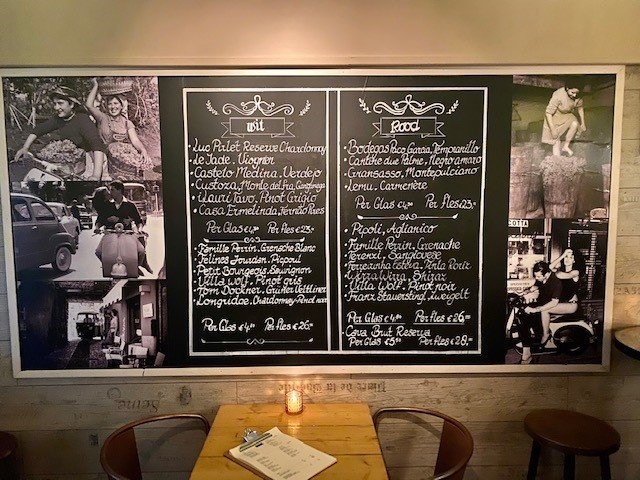 wit
Luc Palet Reserve Chardonnay
Le Jade, Viognier
Castelo Medina, Verdejo
Custoza, Monte del Fra, Garganega
Lauri Tavo, Pinot Grigio
Casa Ermelinda, Fernão Pires
Per Glas €4.
Per Fles €23.-
Famille Perrin, Grenache Blanc
Felines Jourdan, Picpoul
Petit Bourgeois, Sauvignon
Villa Wolf, Pinot gris
Tom Dockner, Grüner Veltliner
Longridge, Chardonnay-Pinot noir
Per Glas €4.
Per Fles €26.-
Rood
Bodegas Paco Garcia, Tempranillo
Cantine due Palme, Negroamaro
Gransasso, Montepulciano
Lemu, Carmenère
Per Glas €4.
Per Fles €23.-
Pipoli, Aglianico
Famille Perrin, Grenache
Terenzi, Sangiovese
Tinta Rorir
Shiraz
Villa Wolf, Pinot noir
Franz
Per Glas €4.
Per Fles €26.-
Cava Brut Reserva
Per Glas €5.
Per Fles €28.-